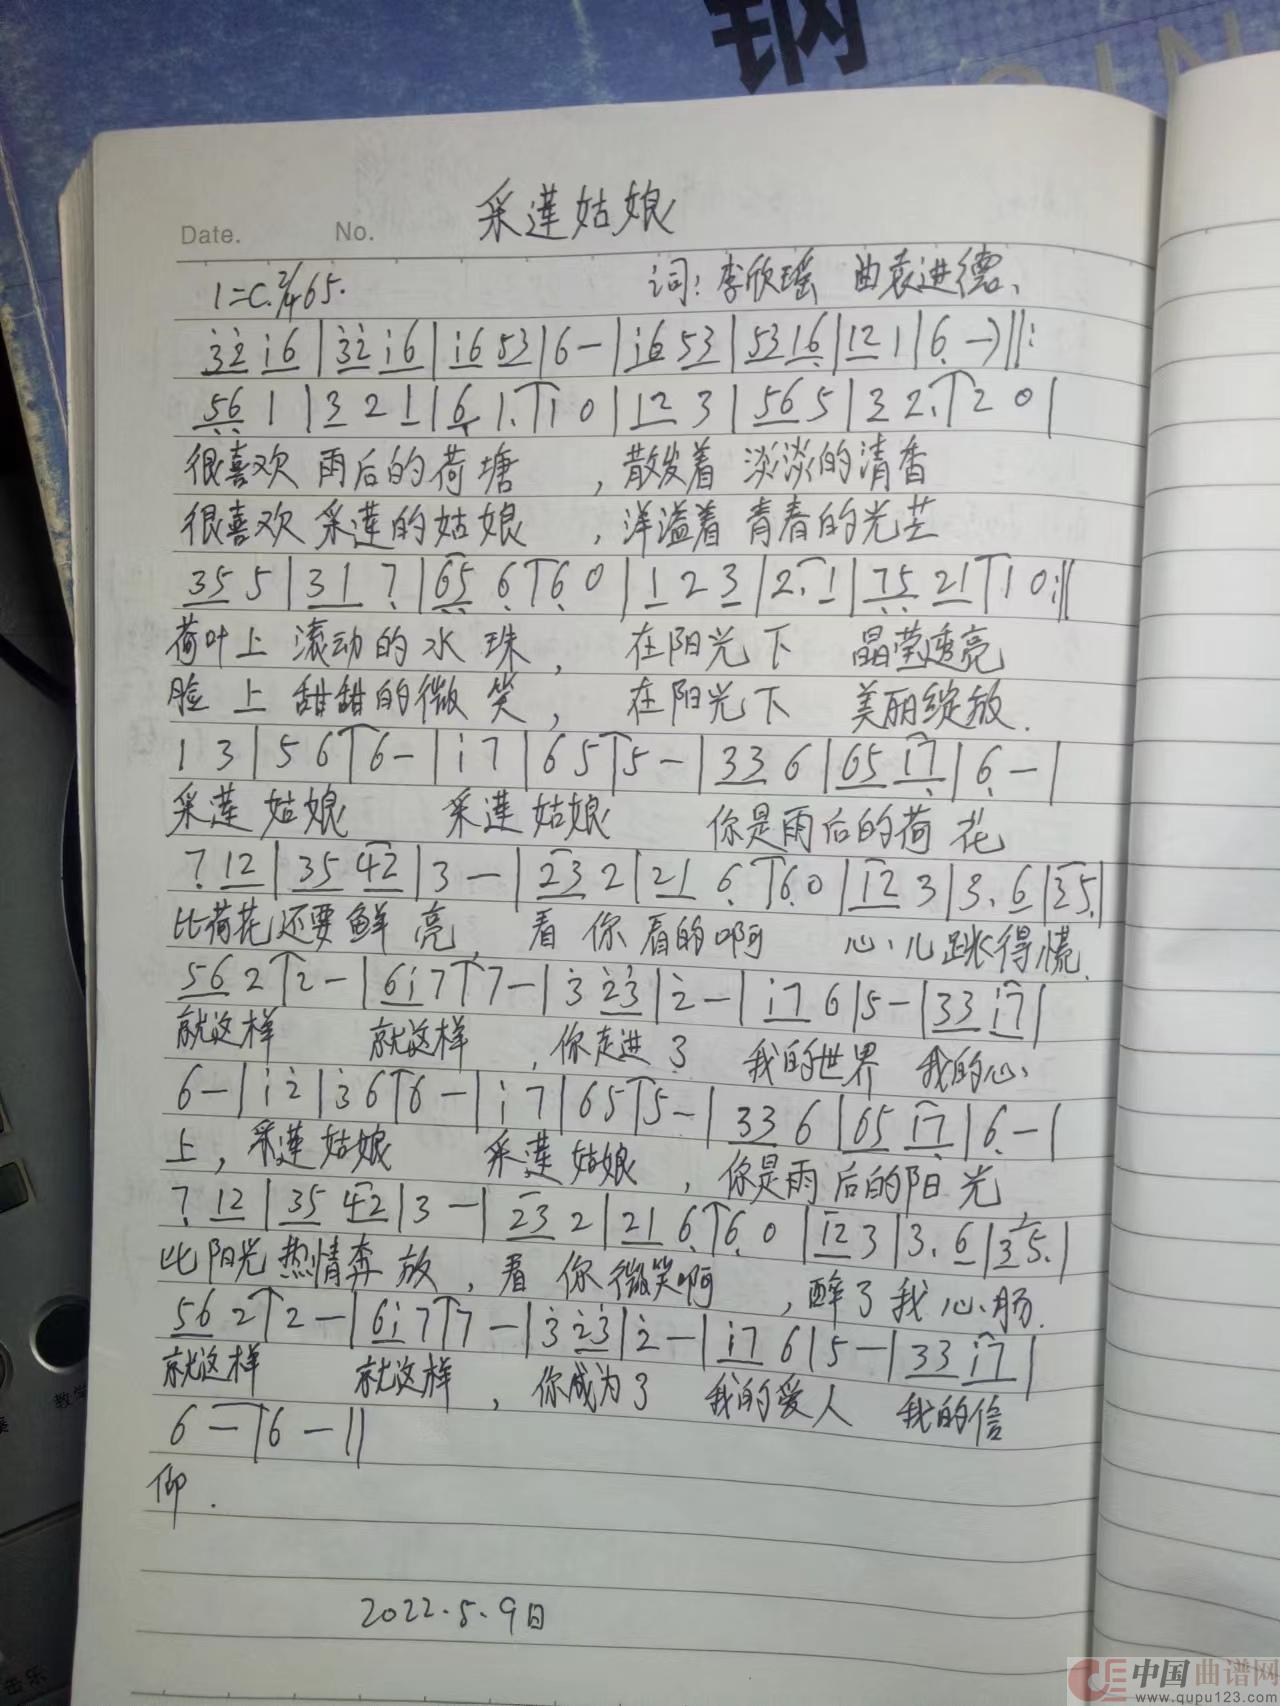 钢
Date. No. 采莲姑娘
1=C 2/4 65. 词:李欣瑶 曲袁进德、
3̇2̇ i6 | 3̇2̇ i6 | i6 53 | 6 - | i6 53 | 53 16̣ | 12 1 | 6̣ -) ‖:
5̣6̣ 1 | 3 2 1 | 6̣ 1. | 1 0 | 12 3 | 56 5 | 3 2. | 2 0 |
很喜欢 雨后的荷塘 ,散发着 淡淡的清香
很喜欢 采莲的姑娘 ,洋溢着 青春的光芒
35 5 | 31 7̣ | 6̣5̣ 6̣ | 6̣ 0 | 1 2 3 | 2. 1 | 7̣5̣ 21 | 1 0 :‖
荷叶上 滚动的水 珠, 在阳光下 晶莹透亮
脸上 甜甜的微 笑, 在阳光下 美丽绽放.
1 3 | 5 6 | 6 - | i 7 | 6 5 | 5 - | 33 6 | 65 17̣ | 6̣ - |
采莲 姑娘 采莲 姑娘 你是雨后的荷 花
7̣ 12 | 35 42 | 3 - | 23 2 | 21 6̣ | 6̣ 0 | 12 3 | 3. 6 | 35. |
比荷花还要鲜 亮, 看 你看的啊 心儿跳得慌.
56 2 | 2 - | 6i 7 | 7 - | 3̇ 2̇3̇ | 2̇ - | i7 6 | 5 - | 33 i7 |
就这样 就这样 ,你走进了 我的世界 我的心
6 - | i 2̇ | 3̇ 6 | 6 - | i 7 | 6 5 | 5 - | 33 6 | 65 17̣ | 6̣ - |
上,采莲 姑娘 采莲 姑娘 ,你是雨后的阳 光
7̣ 12 | 35 42 | 3 - | 23 2 | 21 6̣ | 6̣ 0 | 12 3 | 3. 6 | 35. |
比阳光热情奔 放,看 你微笑啊 ,醉了我心肠.
56 2 | 2 - | 6i 7 | 7 - | 3̇ 2̇3̇ | 2̇ - | i7 6 | 5 - | 33 i7 |
就这样 就这样 ,你成为了 我的爱人 我的信
6 - | 6 - ‖
仰.
2022.5.9日
中国曲谱网
www.qupu123.com